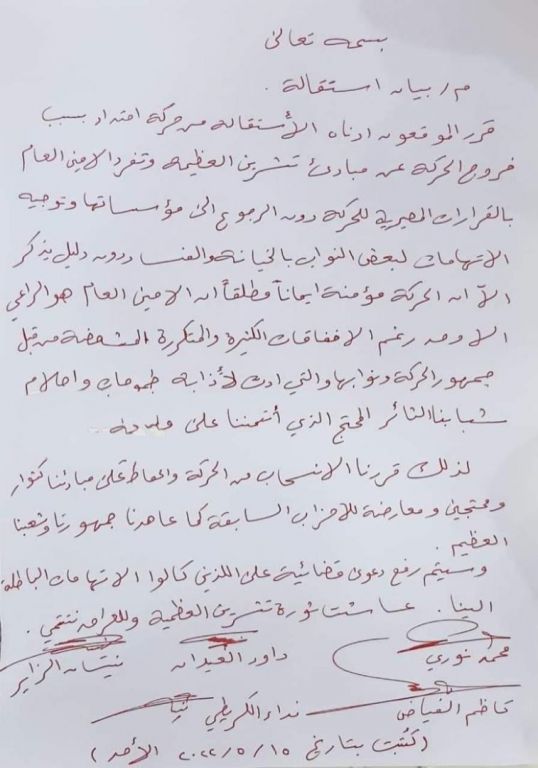 بسمه تعالى
م/ بيان استقالة .
قرر الموقعون ادناه الأستقالة من حركة امتداد بسبب
خروج الحركة عن مبادئ تشرين العظيمة وتفرد الامين العام
بالقرارات المصيرية للحركة دون الرجوع الى مؤسساتها وتوجيه
الاتهامات لبعض النواب بالخيانة والفساد دون دليل يذكر
الاّ ان الحركة مؤمنة ايماناً مطلقاً ان الامين العام هو الراعي
الاوحد رغم الاخفاقات الكثيرة والمتكررة المشخصة من قبل
جمهور الحركة ونوابها والتي ادت لأذابة طموحات واحلام
شبابنا الثائر المحتج الذي أئتمننا على
لذلك قررنا الانسحاب من الحركة والحفاظ على مبادئنا كثوار
ومحتجين ومعارضة للاحزاب السابقة كما عاهدنا جمهورنا وشعبنا
العظيم .
وسيتم رفع دعوى قضائية على اللذين كالوا الاتهامات الباطلة
الينا . عاشت ثورة تشرين العظيمة وللعراق ننتمي .
محمد نوري داود العيدان نيسان الزاير
كاظم الفياض نداء الكريطي
(كُتبت بتاريخ ١٥/٥/٢٠٢٢ الأحد)